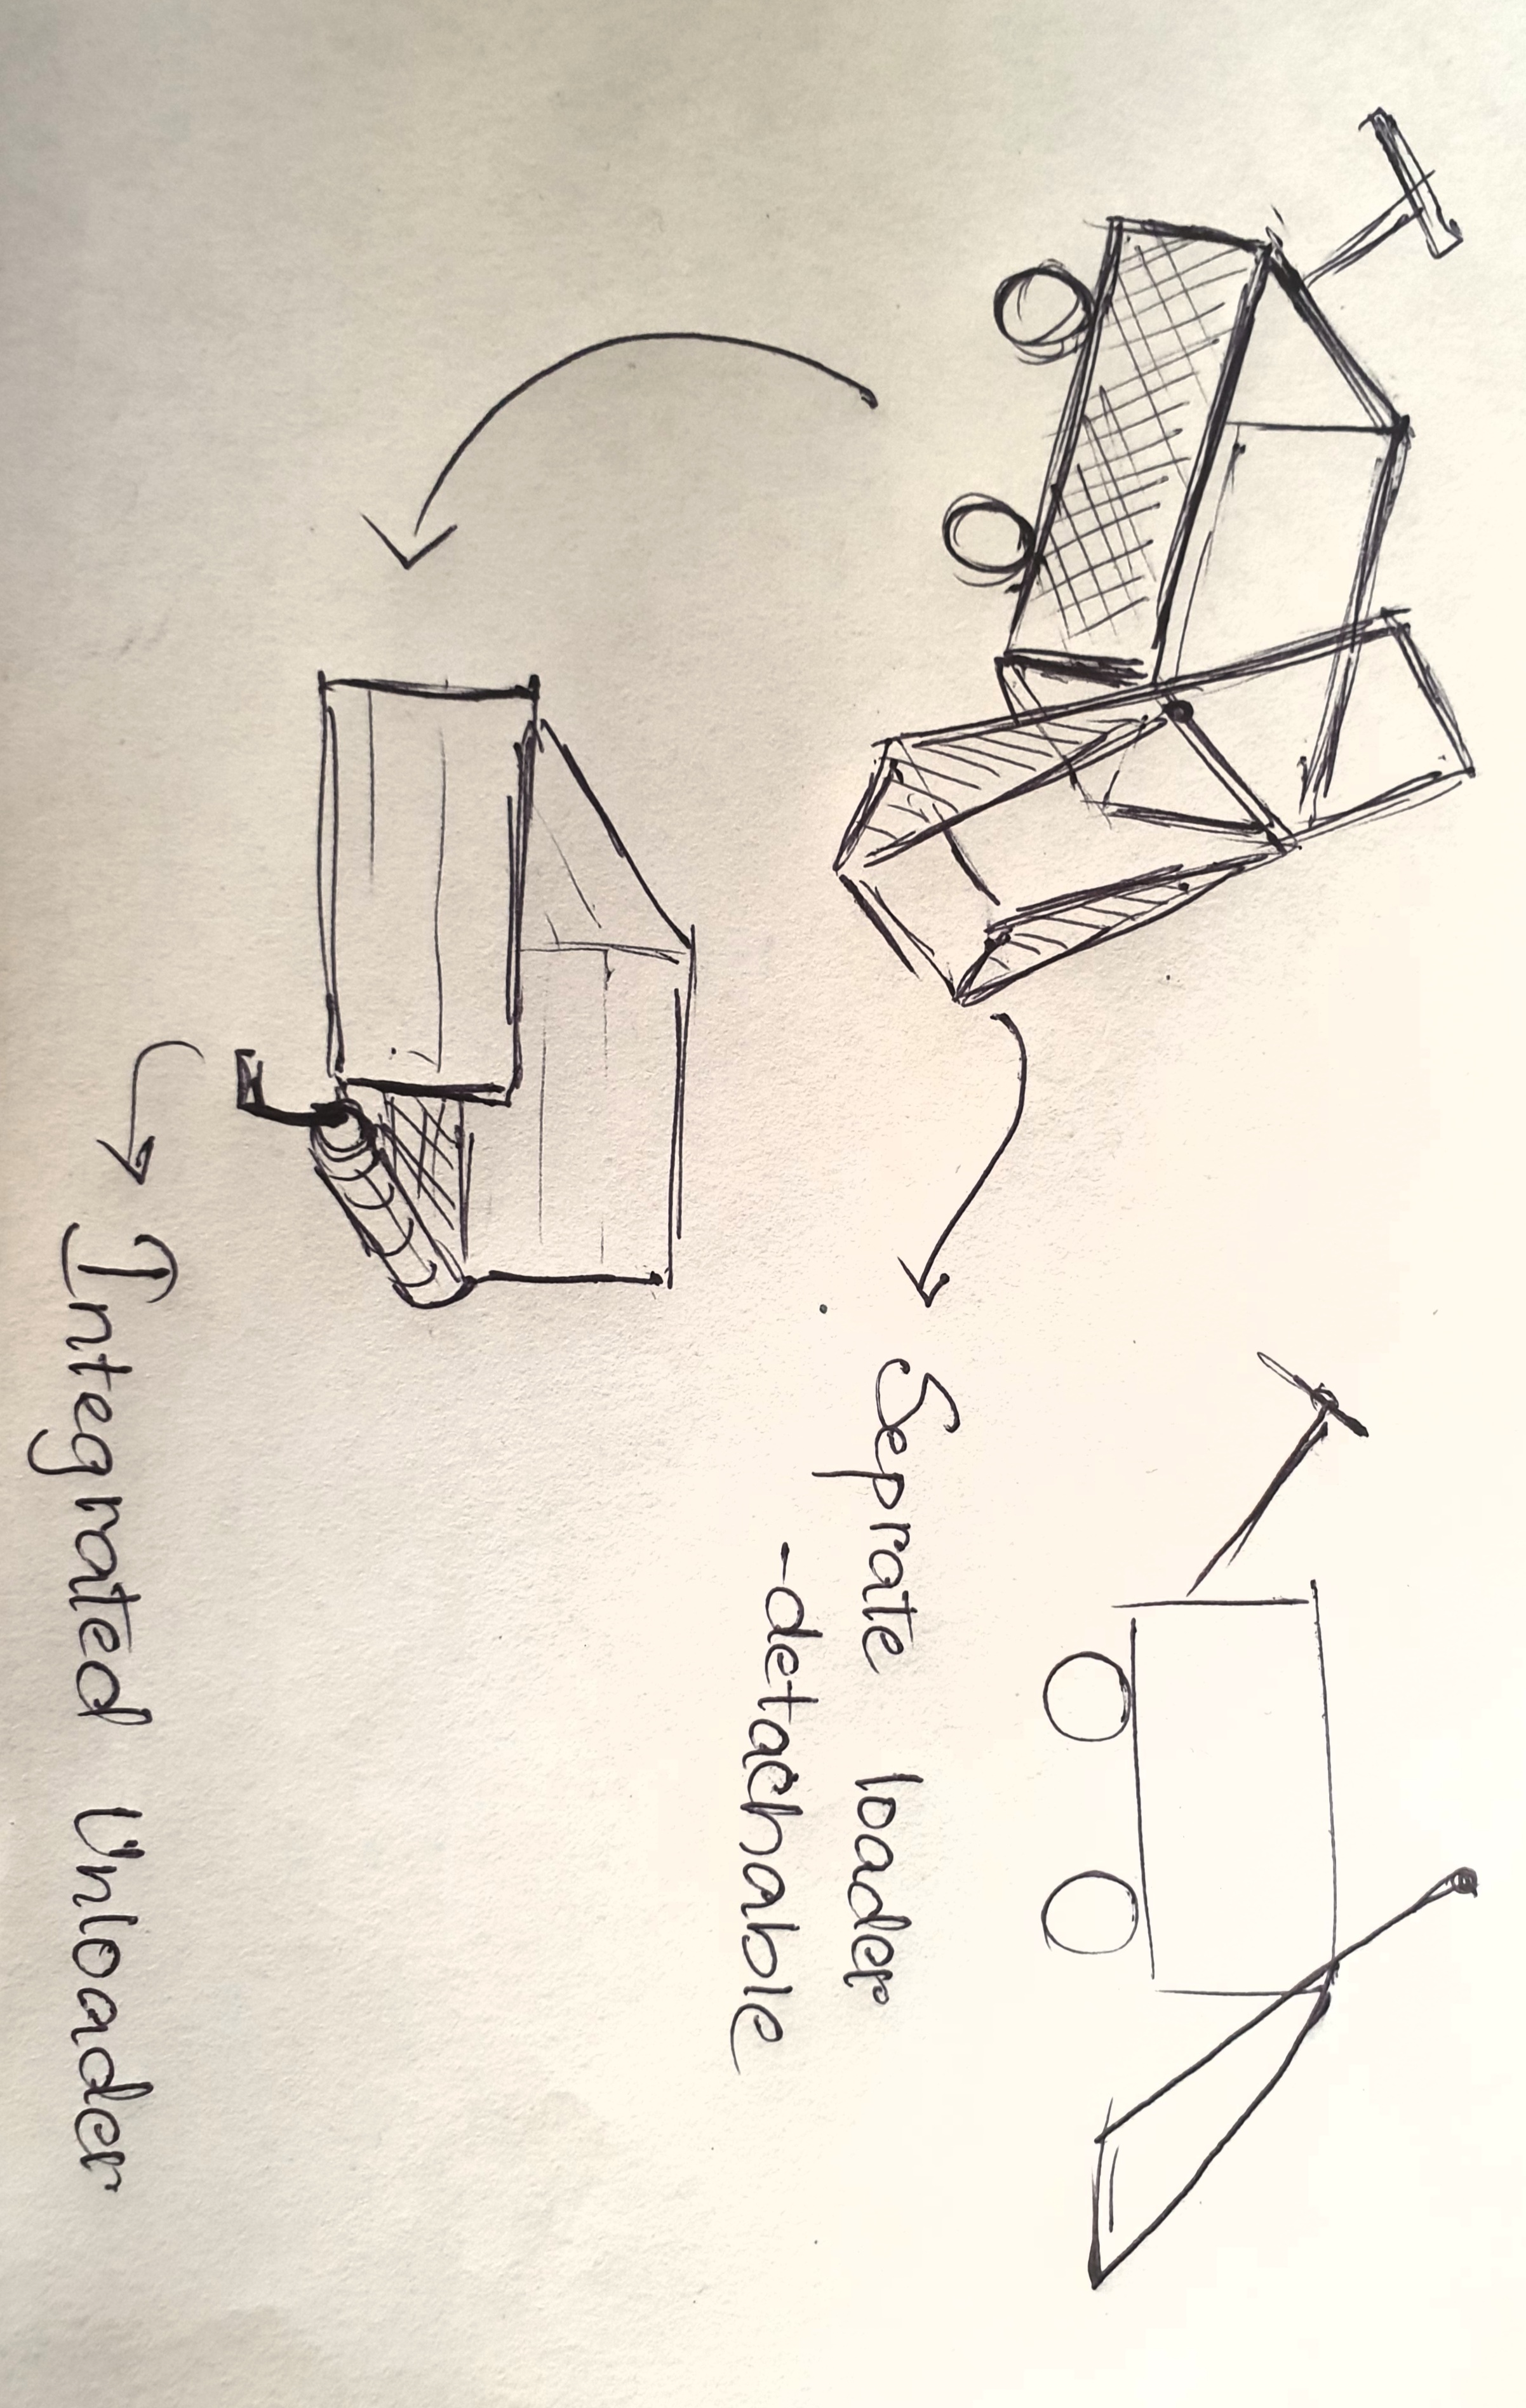 Seprate loader
-detachable
Integrated Unloader